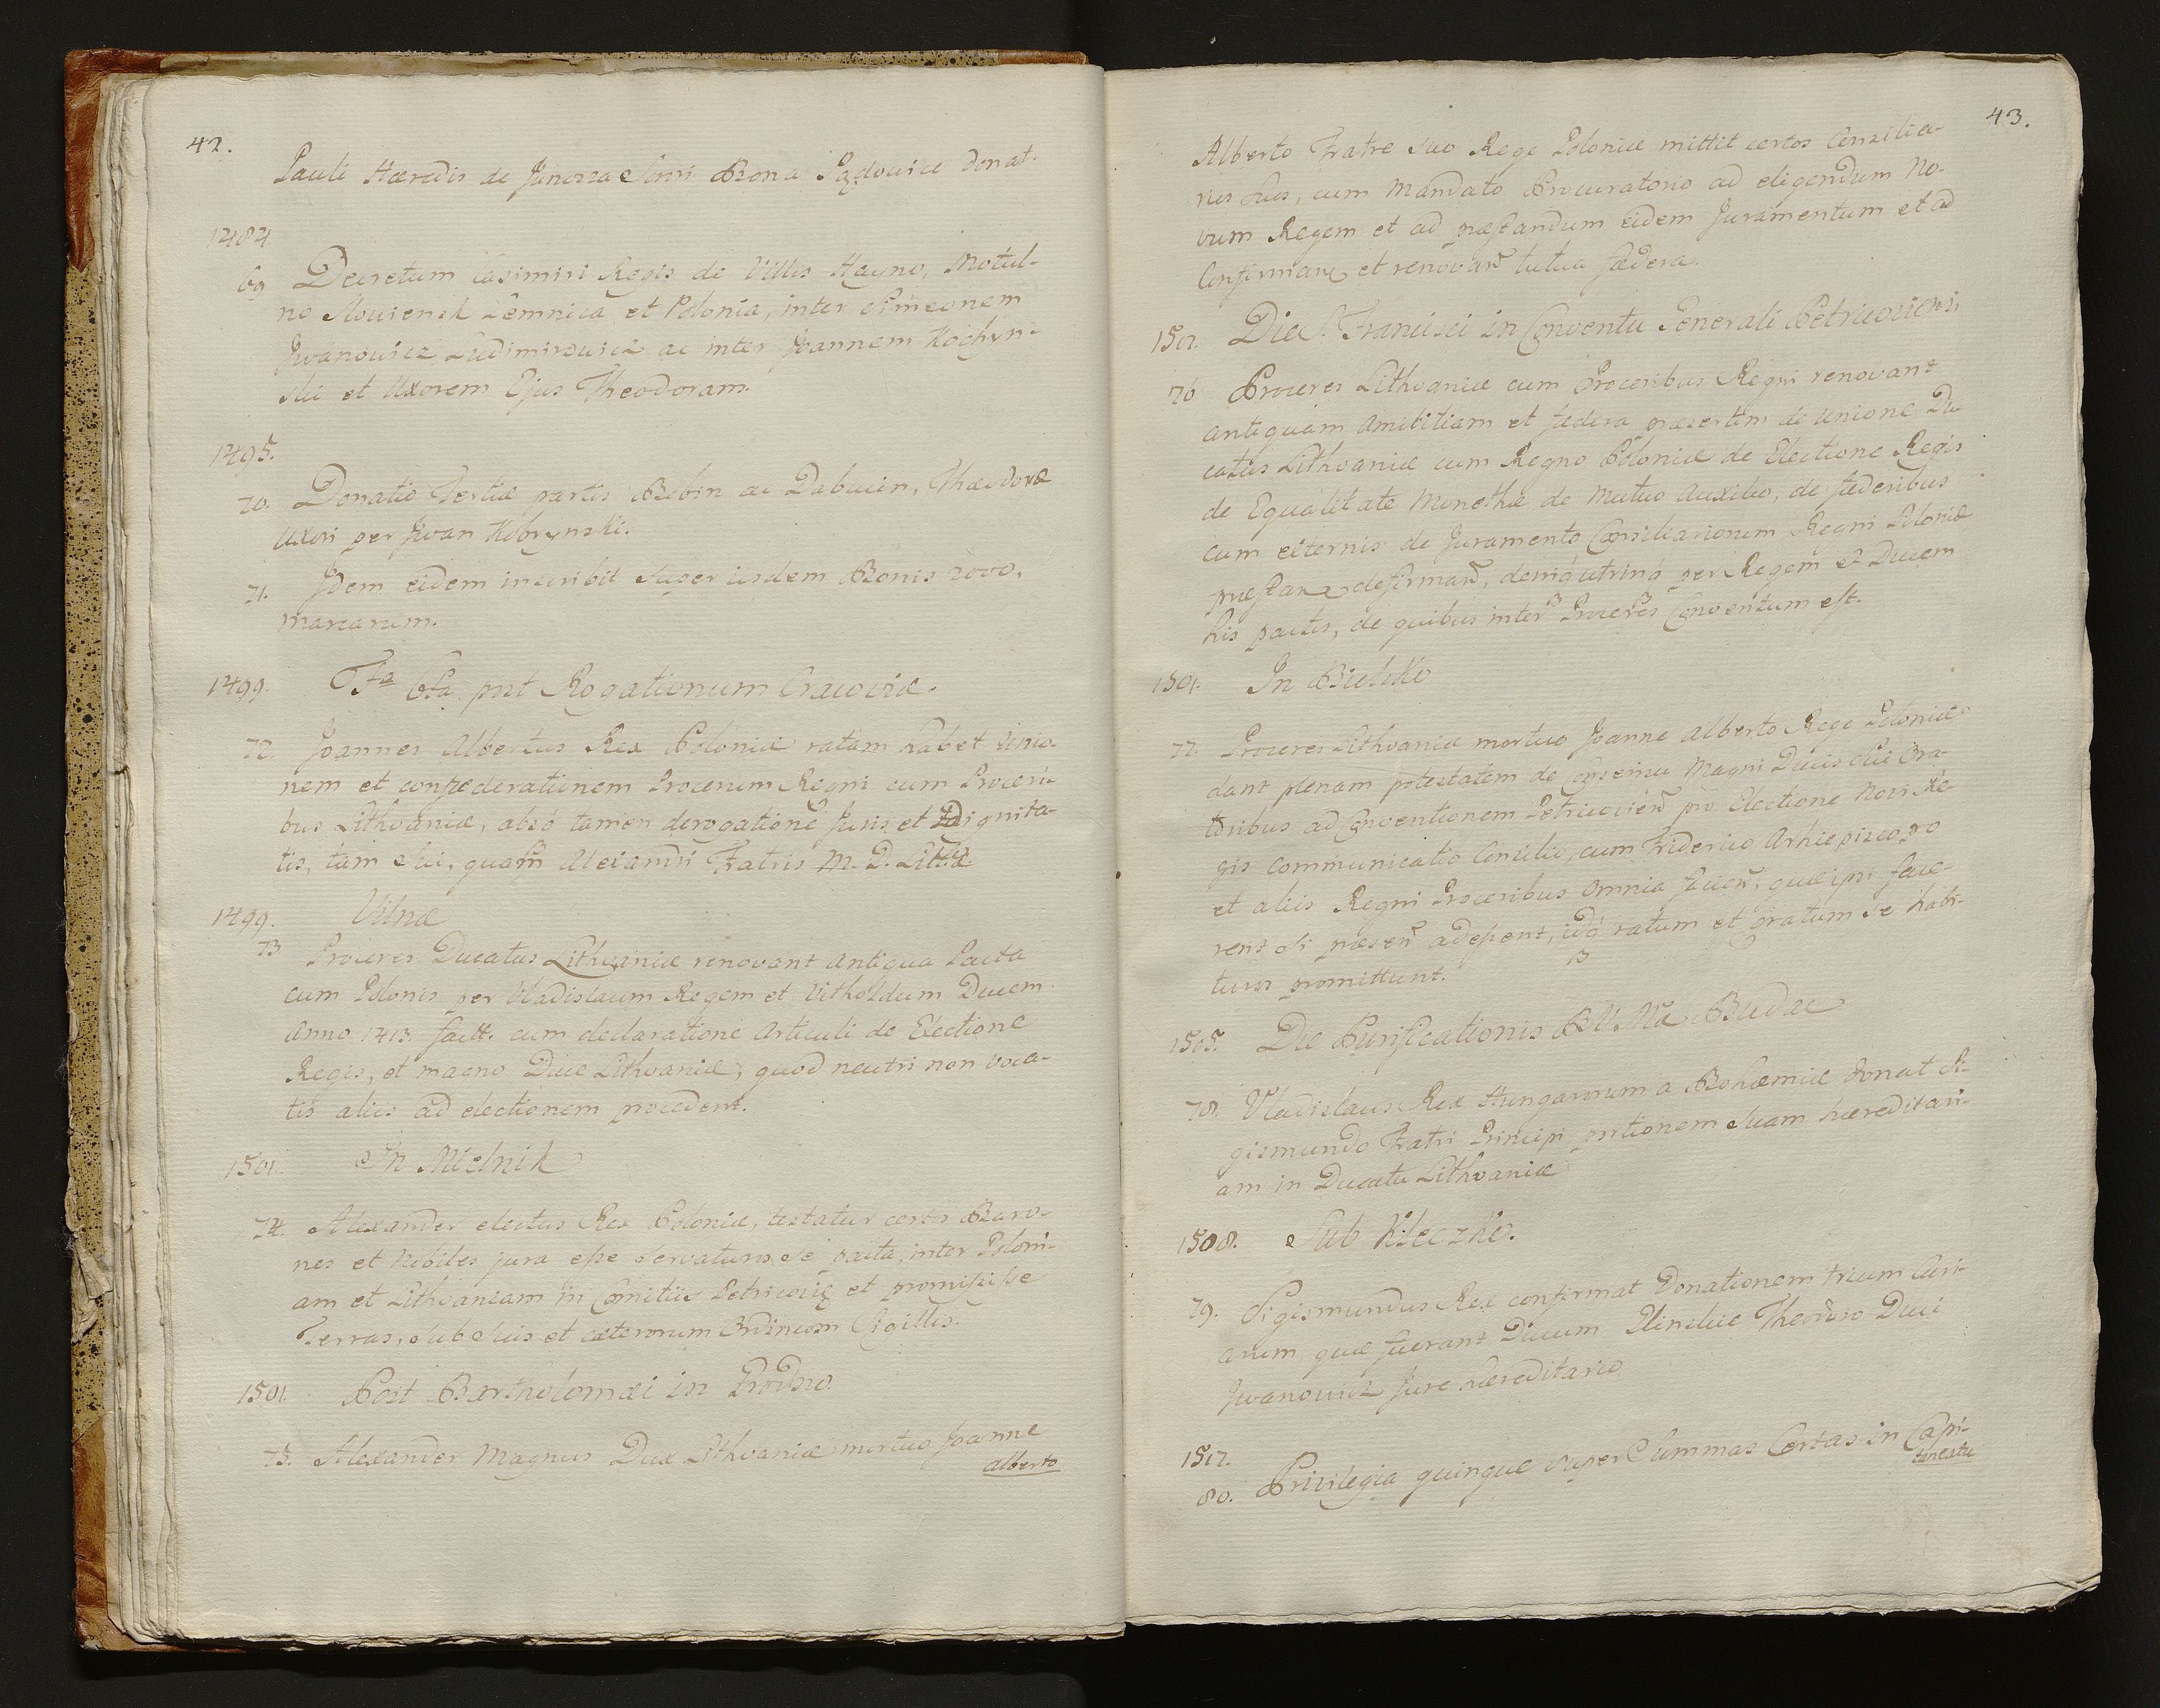 42.
Pauli Hæredis de Janosza Sorori Bona Sądowice donat.
1484
69 Decretum Casimiri Regis de Villis Hayno, Motul-
no Slowensk Zemnica et Polonia, inter Simeonem
Jwanowicz Ludimirowicz ac inter Joannem Kochyn-
ski et Uxorem Ejus Theodoram.
1495.
70. Donatio Tertiæ partis Bobin ac Dabucin, Theodoræ
Uxori per Jwan Kobrynski.
71. Jdem eidem inscribit super iisdem Bonis
marcarum.
1499. Fia 6ta post Rogationum Cracoviæ.
72. Joannes Albertus Rex Poloniæ ratam habet unio-
nem et confæderationem Procerum Regni cum Proceri-
bus Lithvaniæ, absq tamen derogatione Juris et Dignita-
tis, tam Sui, quam Alexandri Fratris M. D. Litt.
1499. Vilnæ
73 Proceres Ducatus Lithvaniæ renovant antiqua Pacta
cum Polonis per Vladislaum Regem et Vitholdum Ducem
Anno 1413. fact. cum declaratione Articuli de Electione
Regis, et magno Duce Lithvaniæ, quod neutri non voca-
tis aliis ad electionem procedent.
1501. In Mielnik
74. Alexander electus Rex Poloniæ, testatur certos Baro-
nes et Nobiles jura esse servaturos se pacta, inter Poloni-
am et Lithvaniam in Comitiis Petricoviæ et promisisse
Terras, sub suis et cæterorum Ordinum Sigillis.
1501. Post Bartholomæi in Grodno.
75. Alexander Magnus Dux Lithvaniæ mortuo Joanne
alberto
43.
Alberto Fratre suo Rege Poloniæ mittit certos Consilia-
rios suos, cum Mandato Procuratorio ad eligendum No-
vum Regem et ad præstandum eidem Juramentum et ad
Confirmand et renovand tutua fædera.
1501. Die S. Francisci in Conventu Generali Petricovien
76 Proceres Lithvaniæ cum Proceribus Regni renovant
antiquam Amicitiam et fædera præsertim de Unione Du-
catus Lithvaniæ cum Regno Poloniæ de Electione Regis
de Equalitate Monethæ de Mutuo Auxilio, de fæderibus
cum externis de Juramento Consiliariorum Regni Poloniæ
præstan deq firmand, deniq utrinq per Regem et Ducem
his pactis, de quibus inter Proceres Conventum est.
1501. In Bielsko
77. Proceres Lithvaniæ mortuo Joanne Alberto Rege Poloniæ
dant plenam potestatem de Consensu Magni Ducis Sui Ora-
toribus ad Conventionem Petricovien pro Electione Novi Re-
gis Communicato Consilio, cum Friderico Archiepiscopo
et aliis Regni Proceribus Omnia faciend, quæ ipsi face-
rent si præsen adessent, idq ratum et gratum se habi-
turos promittunt.
1505. Die Purificationis B. V. Mæ Budæ
78. Vladislaus Rex Hungarorum a Bohæmiæ donat Si-
gismundo Fratri Principi portionem suam hæreditari-
am in Ducatu Lithvaniæ
1508. Sub Kleczko.
79. Sigismundus Rex confirmat Donationem trium Curi-
arum quæ fuerant Ducum Theodoro Duci
Jwanowicz Jure hæreditario
1517.
80. Privilegia quinque super Summas Certas in Capi-
taneatu